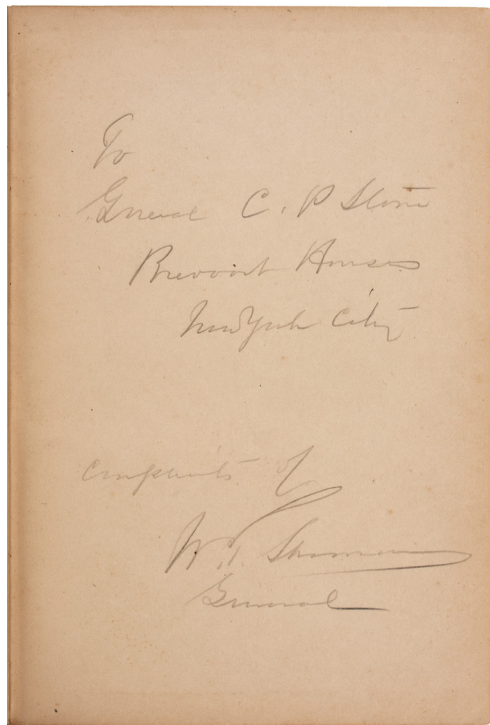 To
General C. P Stone
Brevoort House
New York City
Compliments of
W. T. Sherman
General